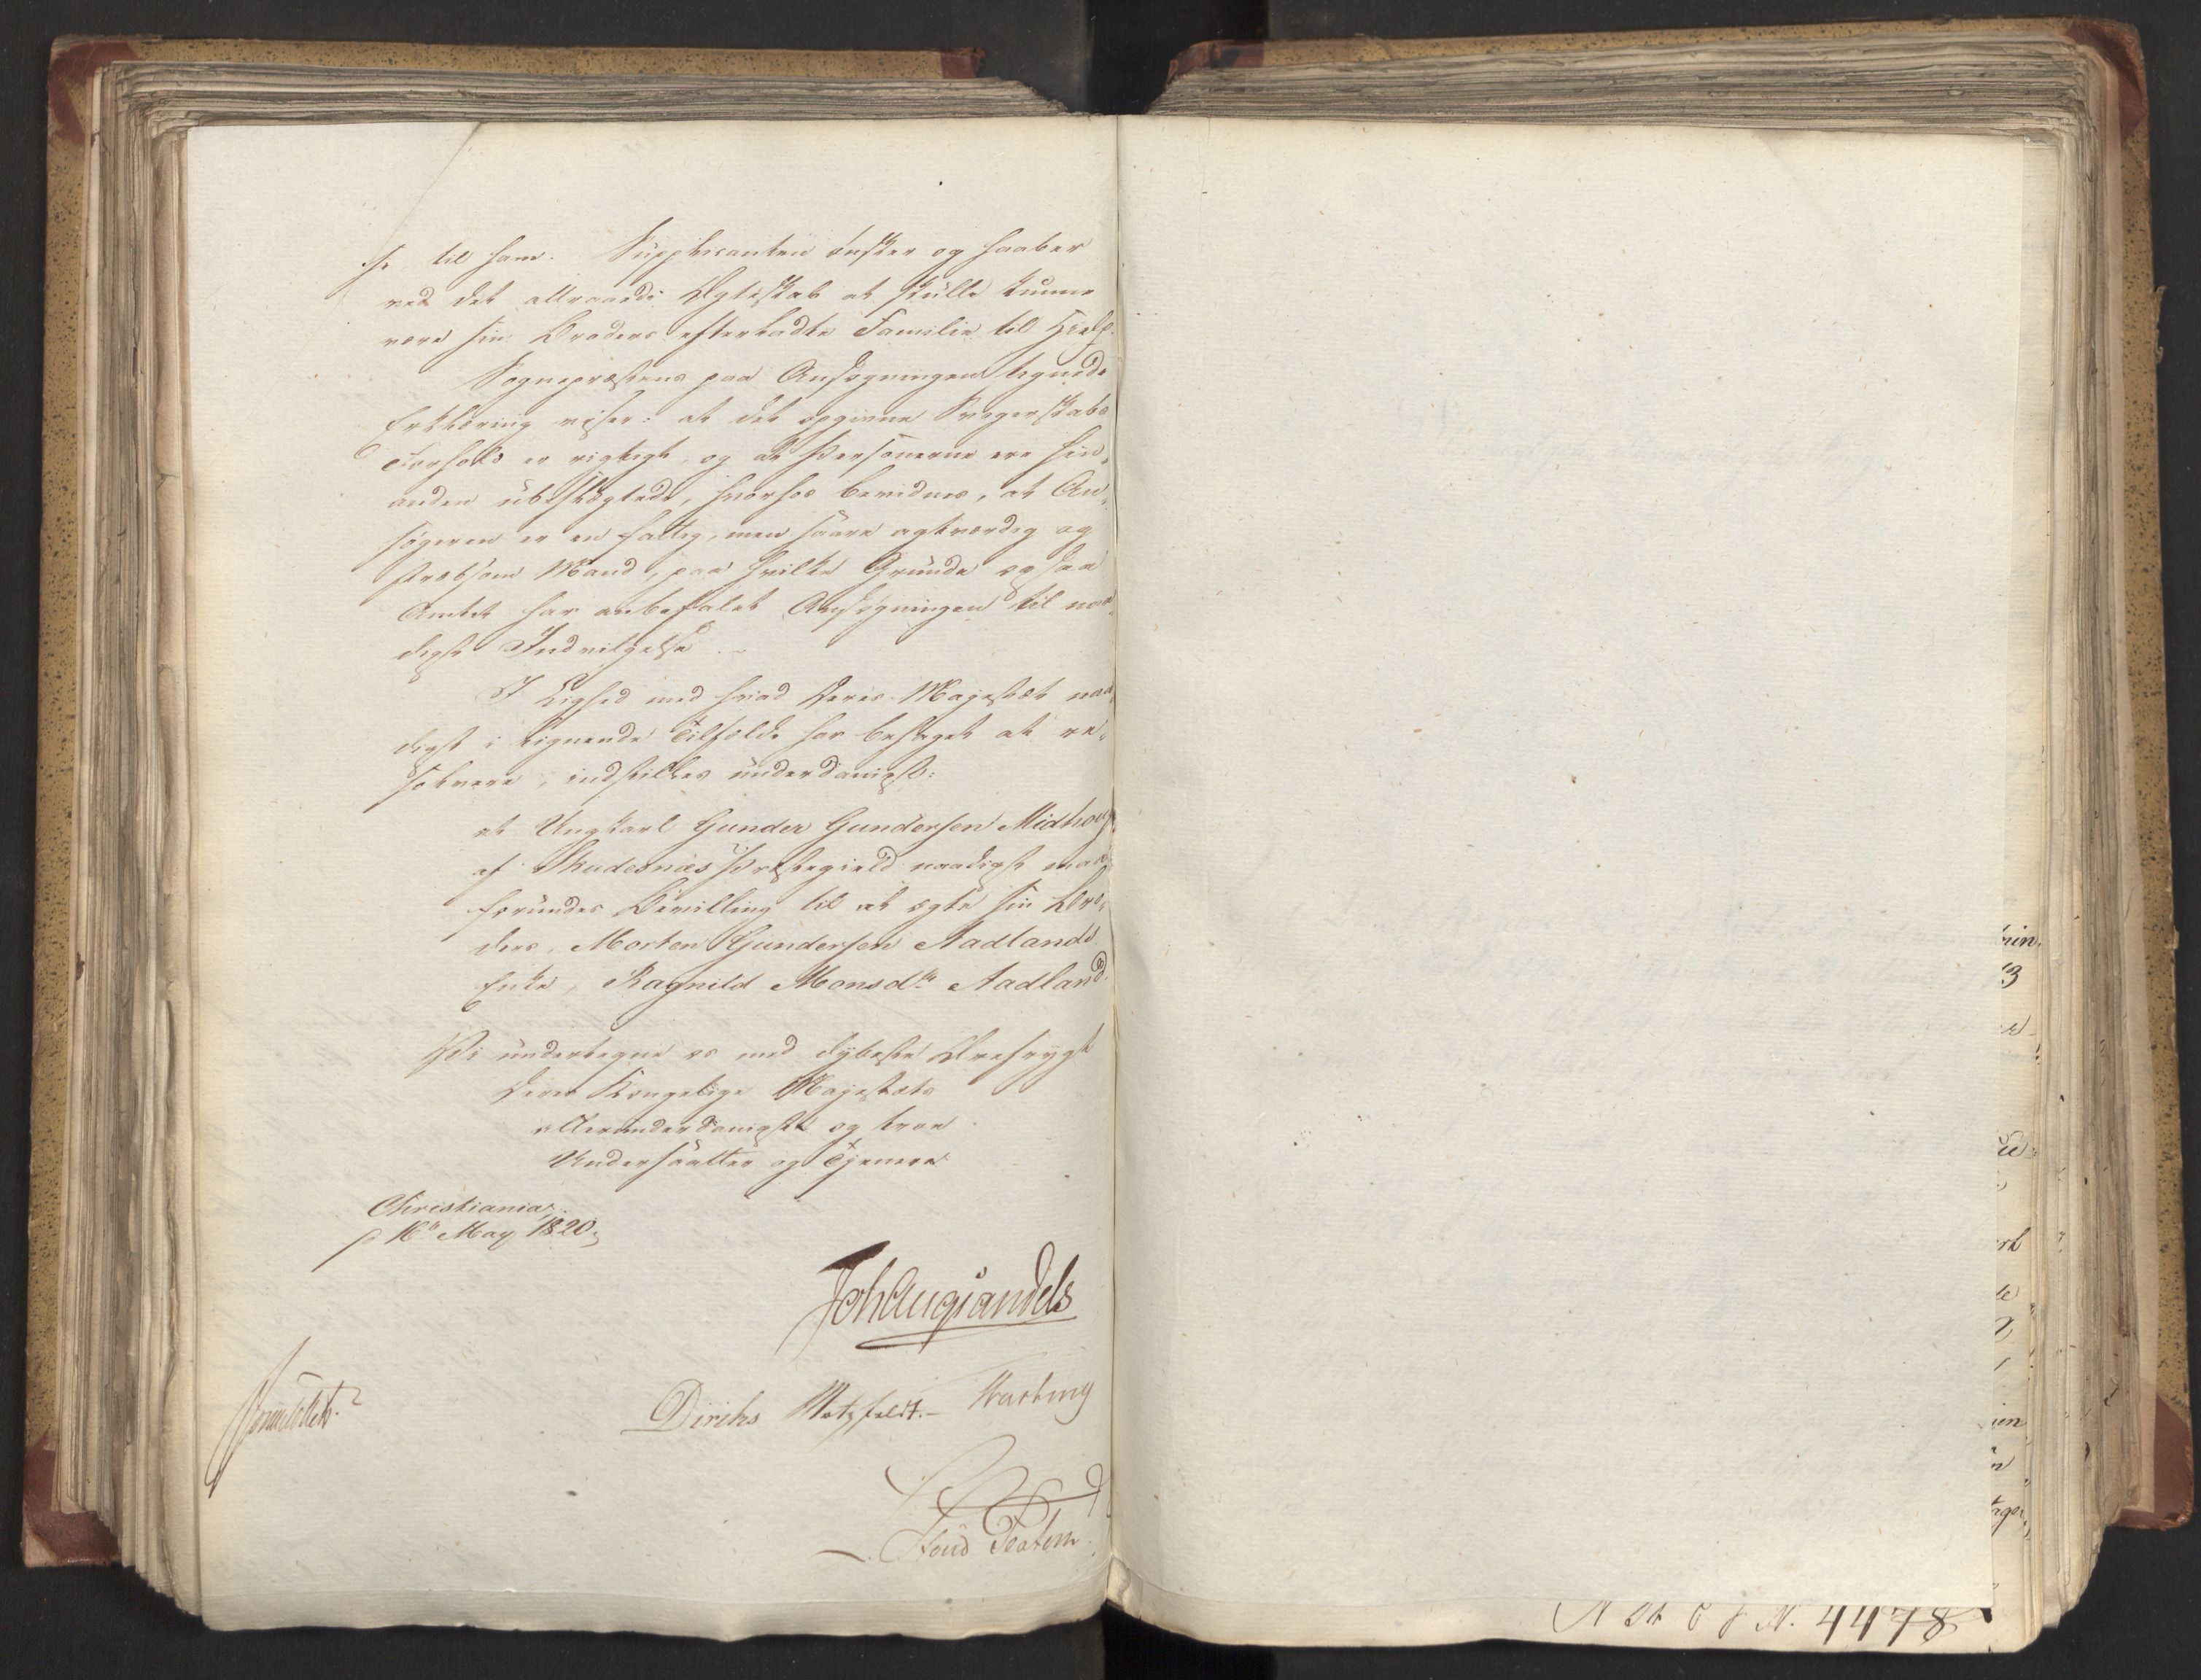 se til ham. Supplicanten ønsker og haaber
ved det attraaede Ægteskab at skulle kunne
være sin Broders efterladte Familie til Hjelp.
Sognepræstens paa Ansøgningen tegnede
Erklæring viser: at det opgivne Svogerskabs
Forhold er rigtigt, og at Personerne ere hin-
anden übeslægtede, hvorhos bevidnes, at An-
søgeren er en fattig, men saare agtværdig og
stræbsom Mand, paa hvilke Grunde ogsaa
Amtet har anbefalet Ansøgningen til naa-
digst Indvilgelse.
I Lighed med hvad Deres Majestæt naa-
digst i lignende Tilfælde har behaget at re-
solvere, indstilles underdanigst:
at Ungkarl Gunder Gundersen Midhoug
af Skudesnæs Præstegield naadigst maa
forundes Bevilling til at ægte sin Bro-
ders, Morten Gundersen Aadlands
Enke, Ragnild Monsdr. Aadland.
Vi undertegne os med dybeste Ærefrygt
Deres Kongelige Majestæts
allerunderdanigste og troe
Undersaatter og Tjenere
Christiania,
d 16de May 1820.
JohAugSandels
Sommerfeldt.
Diriks Motzfeldt.- Krasting
Fasting
N St C f N. 4478